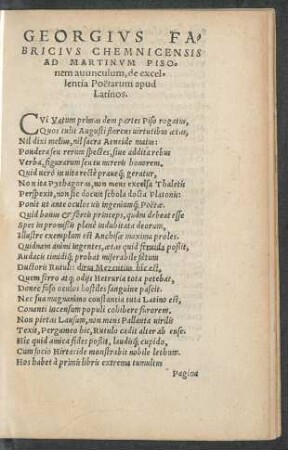 GEORGIVS FA-
BRICIVS CHEMNICENSIS
AD MARTINVM PISO-
nem auunculum, de excel-
lentia Poëtarum apud
Latinos.
CVi Vatum primas dem partes Piso rogatus,
Quos tulit Augusti florens uirtutibus aetas,
Nil dixi melius, nil sacra Aeneide maius:
Pondera seu rerum spectes, siue addita rebus
Verba, figurarum seu tu mireris honorem.
Quid uerò in uita rectè praueq́; geratur,
Non ita Pythagoras, non mens excelsa Thaletis
Perspexit, non sic docuit schola docta Platonis:
Ponit ut ante oculos uis ingeniumq́; Poëtae.
Quid bonus & fortis princeps, quid debeat esse
Spes in promissis planè indubitata deorum,
Illustre exemplum est Anchisae maxima proles.
Quidnam animi ingentes, aetas quid feruida possit,
Audacis timidiq́; probat miserabile fatum
Ductoris Rutuli: dirus Mezentius hic est,
Quem ferro atq; odijs Hetruria tota petebat,
Donec suso oculos hostiles sanguine pascit.
Nec sua magnanimo constantia tuta Latino est,
Conanti incensum populi cohibere furorem.
Non pietas Lausum, non mens Pallanta uirilis
Texit, Pergameo hic, Rutulo cadit alter ab ense.
Hic quid amica fides possit, laudisq́; cupido,
Cum socio Hirtacide monstrabit nobile lethum.
Hos habet à primis libris extrema tumultus
Pagina